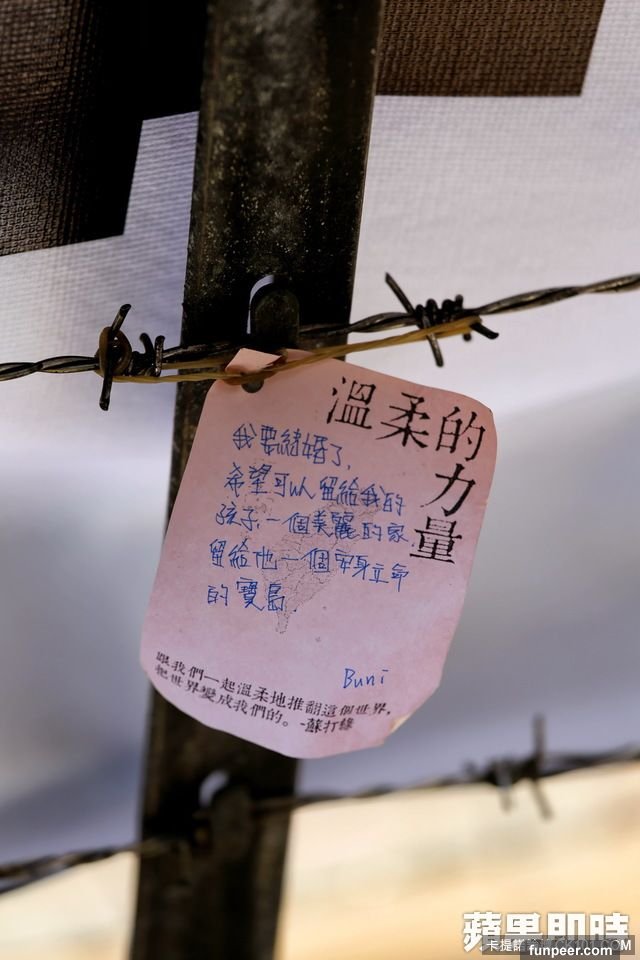 溫柔的
力
量
我要結婚了,
希望可以留給我的
孩子一個美麗的家
留給他一個安身立命
的寶島
Buni
跟我們一起溫柔地推翻這個世界,
把世界變成我們的。-蘇打綠
蘋果即時
卡提諾
funpeer.com